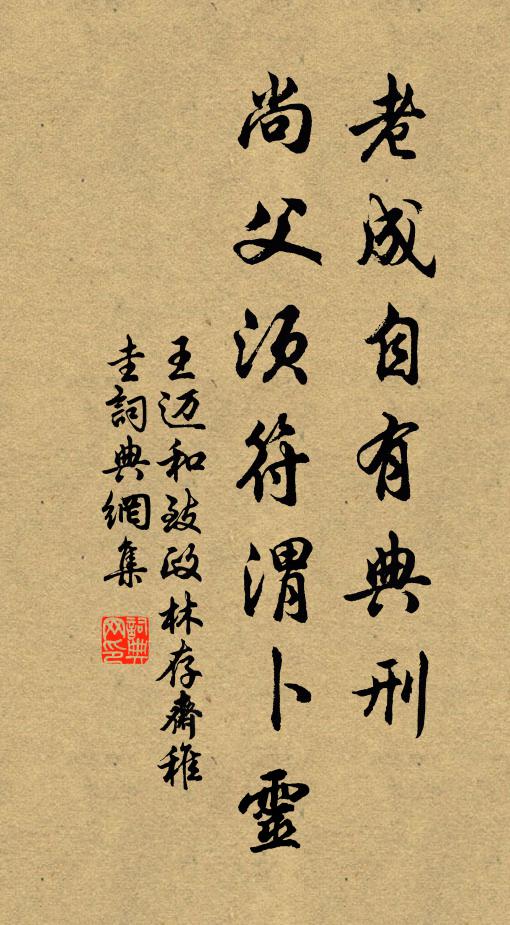 老成自有典刑
尚父須符渭卜靈
王迈和致政林存齋稚
圭詞典網集
詞典網印